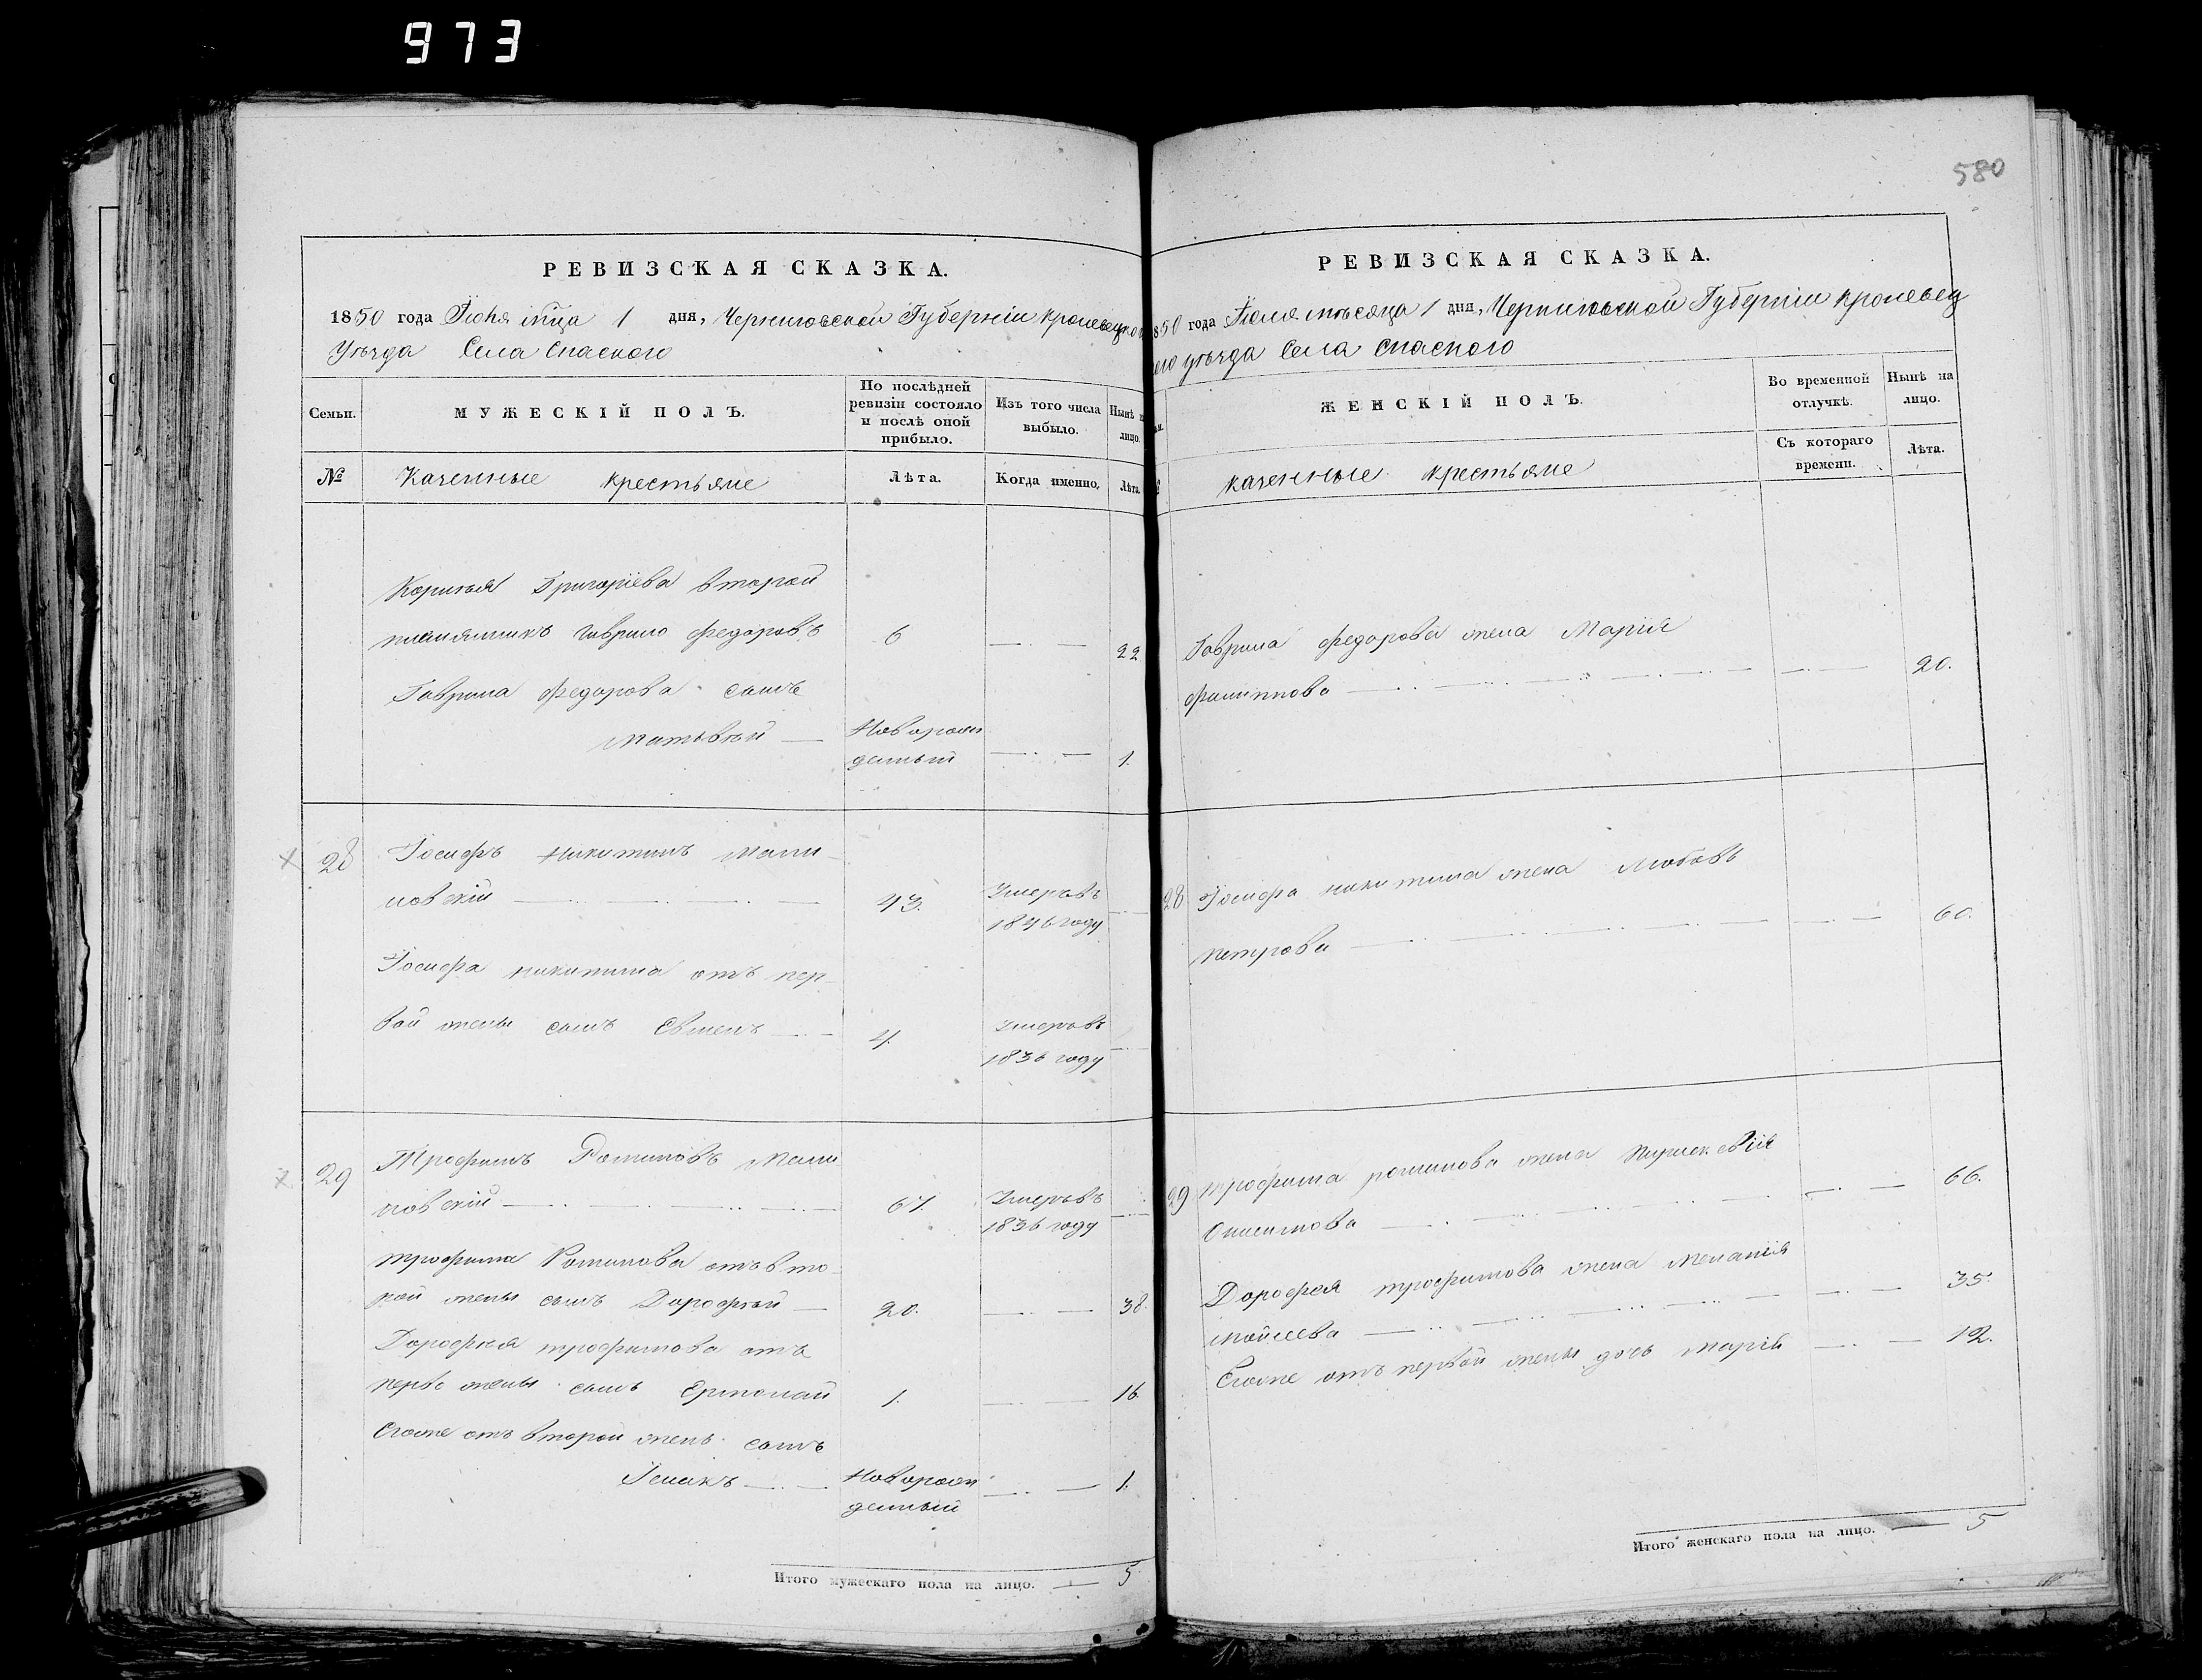 973
580
РЕВИЗСКАЯ СКАЗКА.
1850 года Іюня мца 1 дня, Черниговской Губерніи Кролевецко
Уѣзда Села Спаского
Семьи.
МУЖЕСКІЙ ПОЛЪ.
По послѣдней ревизіи состояло и послѣ оной прибыло.
Изъ того числа выбыло.
Нынѣ на лицо.
№
Казенные крестьяне
Лѣта.
Когда именно.
Лѣта.
Григоріева второй
племянникъ Гаврило Федоровъ 6 22
Гаврила Федорова сынъ
Матьвѣй Новорож
денный 1.
28 Іосифъ Никитинъ Мали
новскій 43. Умеръ въ
1846 году
Іосифа Никитина отъ пер
вой жены сынъ 4. Умеръ въ
1836 году
29 Трофимъ Романовъ Мали
новскій 67. Умеръ въ
1836 году
Трофима Романова отъ вто
рой жены сынъ Дорофѣй 20. 38.
Дорофѣя Трофимова отъ
перво жены сынъ Ермолай 1. 16.
Его же отъ второй жены сынъ
Исакъ Новорож
денный 1.
Итого мужескаго пола на лицо. 5
РЕВИЗСКАЯ СКАЗКА.
850 года Іюня мѣсяца 1 дня, Черниговской Губерніи Кролевец
его уѣзда Села Спаского
ЖЕНСКІЙ ПОЛЪ.
Во временной отлучкѣ.
Нынѣ на лицо.
казенные крестьяне
Съ котораго времени.
Лѣта.
Гаврила Федорова жена Марія
Филиппова 20.
28 Іосифа Никитина жена Любовь
Петрова 60.
29 Трофима Романова жена Параскевія
Онисимова 66.
Дорофея Трофимова жена Меланія
Мойсеева 35.
Его же отъ первой жены дочь Марія 12.
Итого женскаго пола на лицо. 5